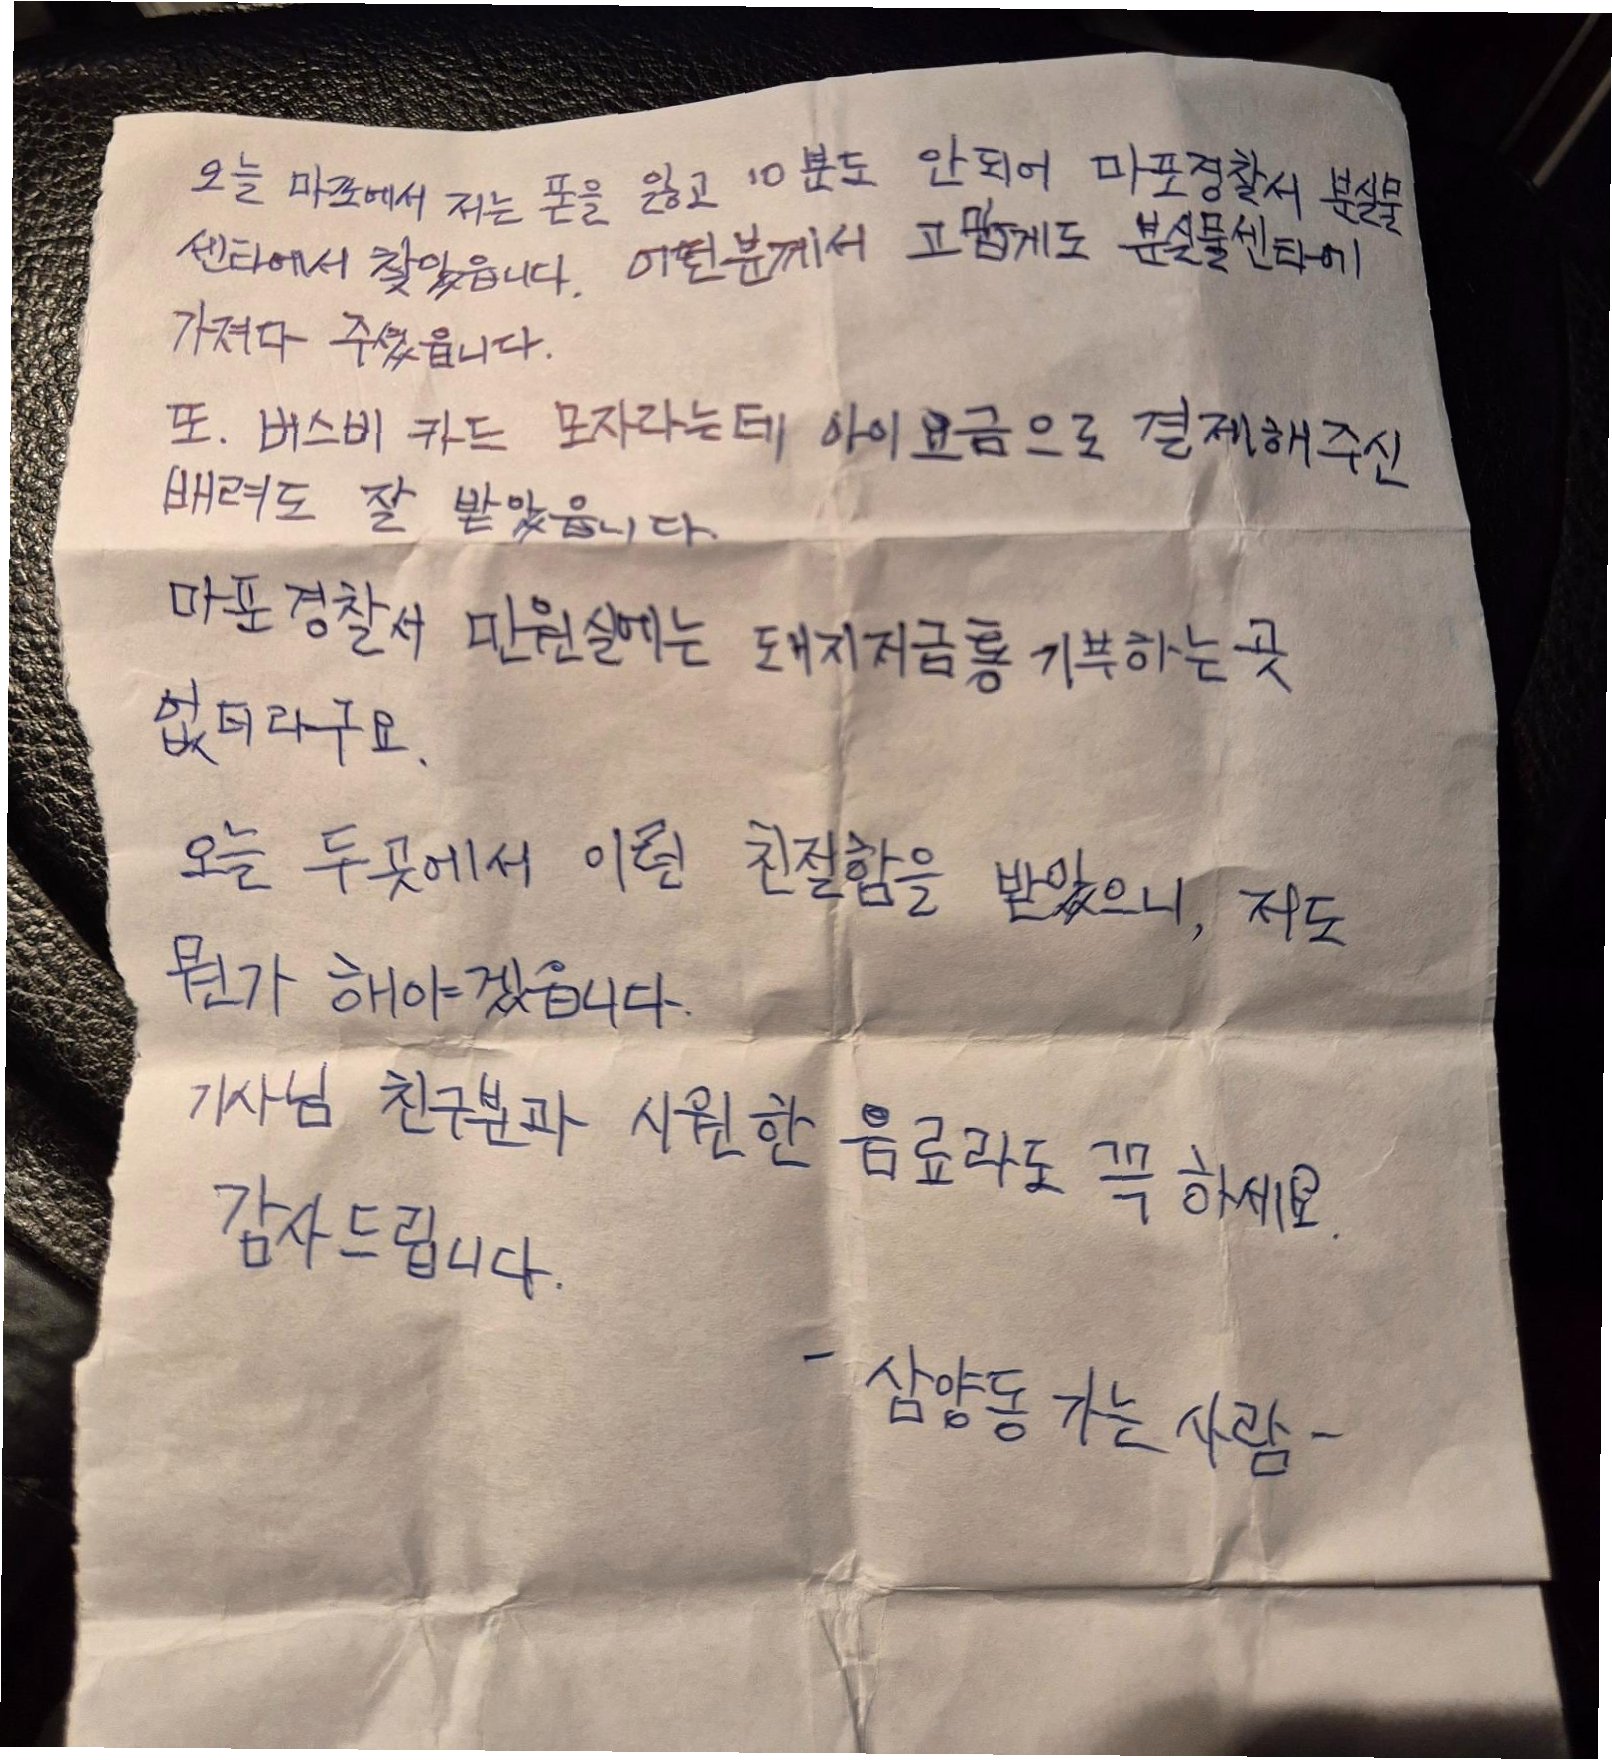 오늘 마포에서 저는 폰을 잃고 10분도 안되어 마포경찰서 분실물
센타에서 찾았읍니다. 어떤분께서 고맙게도 분실물센타에
가져다 주셨읍니다.
또. 버스비 카드 모자라는데 아이요금으로 결제해주신
배려도 잘 받았읍니다.
마포경찰서 민원실에는 돼지저금통 기부하는곳
없더라구요.
오늘 두곳에서 이런 친절함을 받았으니, 저도
뭔가 해야겠읍니다.
기사님 친구분과 시원한 음료라도 꼭 하세요.
감사드립니다.
- 삼양동 가는 사람 -